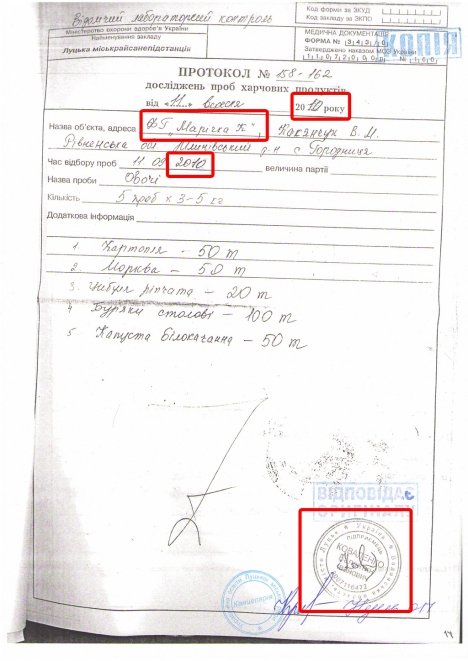 Відомчий лабораторний контроль
Міністерство охорони здоров'я України
Найменування закладу
Луцька міськрайсанепідстанція
Код форми за ЗКУД
Код закладу за ЗКПО
МЕДИЧНА ДОКУМЕНТАЦІЯ
ФОРМА № 343/0
Затверджено наказом МОЗ України
КОПІЯ
ПРОТОКОЛ № 158-162
досліджень проб харчових продуктів
від «11» вересня 2010 року
Назва об'єкта, адреса ФГ "Марічка К",
Рівненська обл р-н с Городниця
Час відбору проб 11.09 2010 величина партії
Назва проби Овочі
Кількість 5 проб х 3-5 кг
Додаткова інформація
1 Картопля - 50 т
2. Морква - 50 т
3 Цибуля ріпчата - 20 т
4 Буряки столові - 100 т
5 Капуста Білокачанна - 50 т
ВІДПОВІДАЄ
ОРИГІНАЛУ
Підприємець
КОВАЛЕНКО
Канцелярія